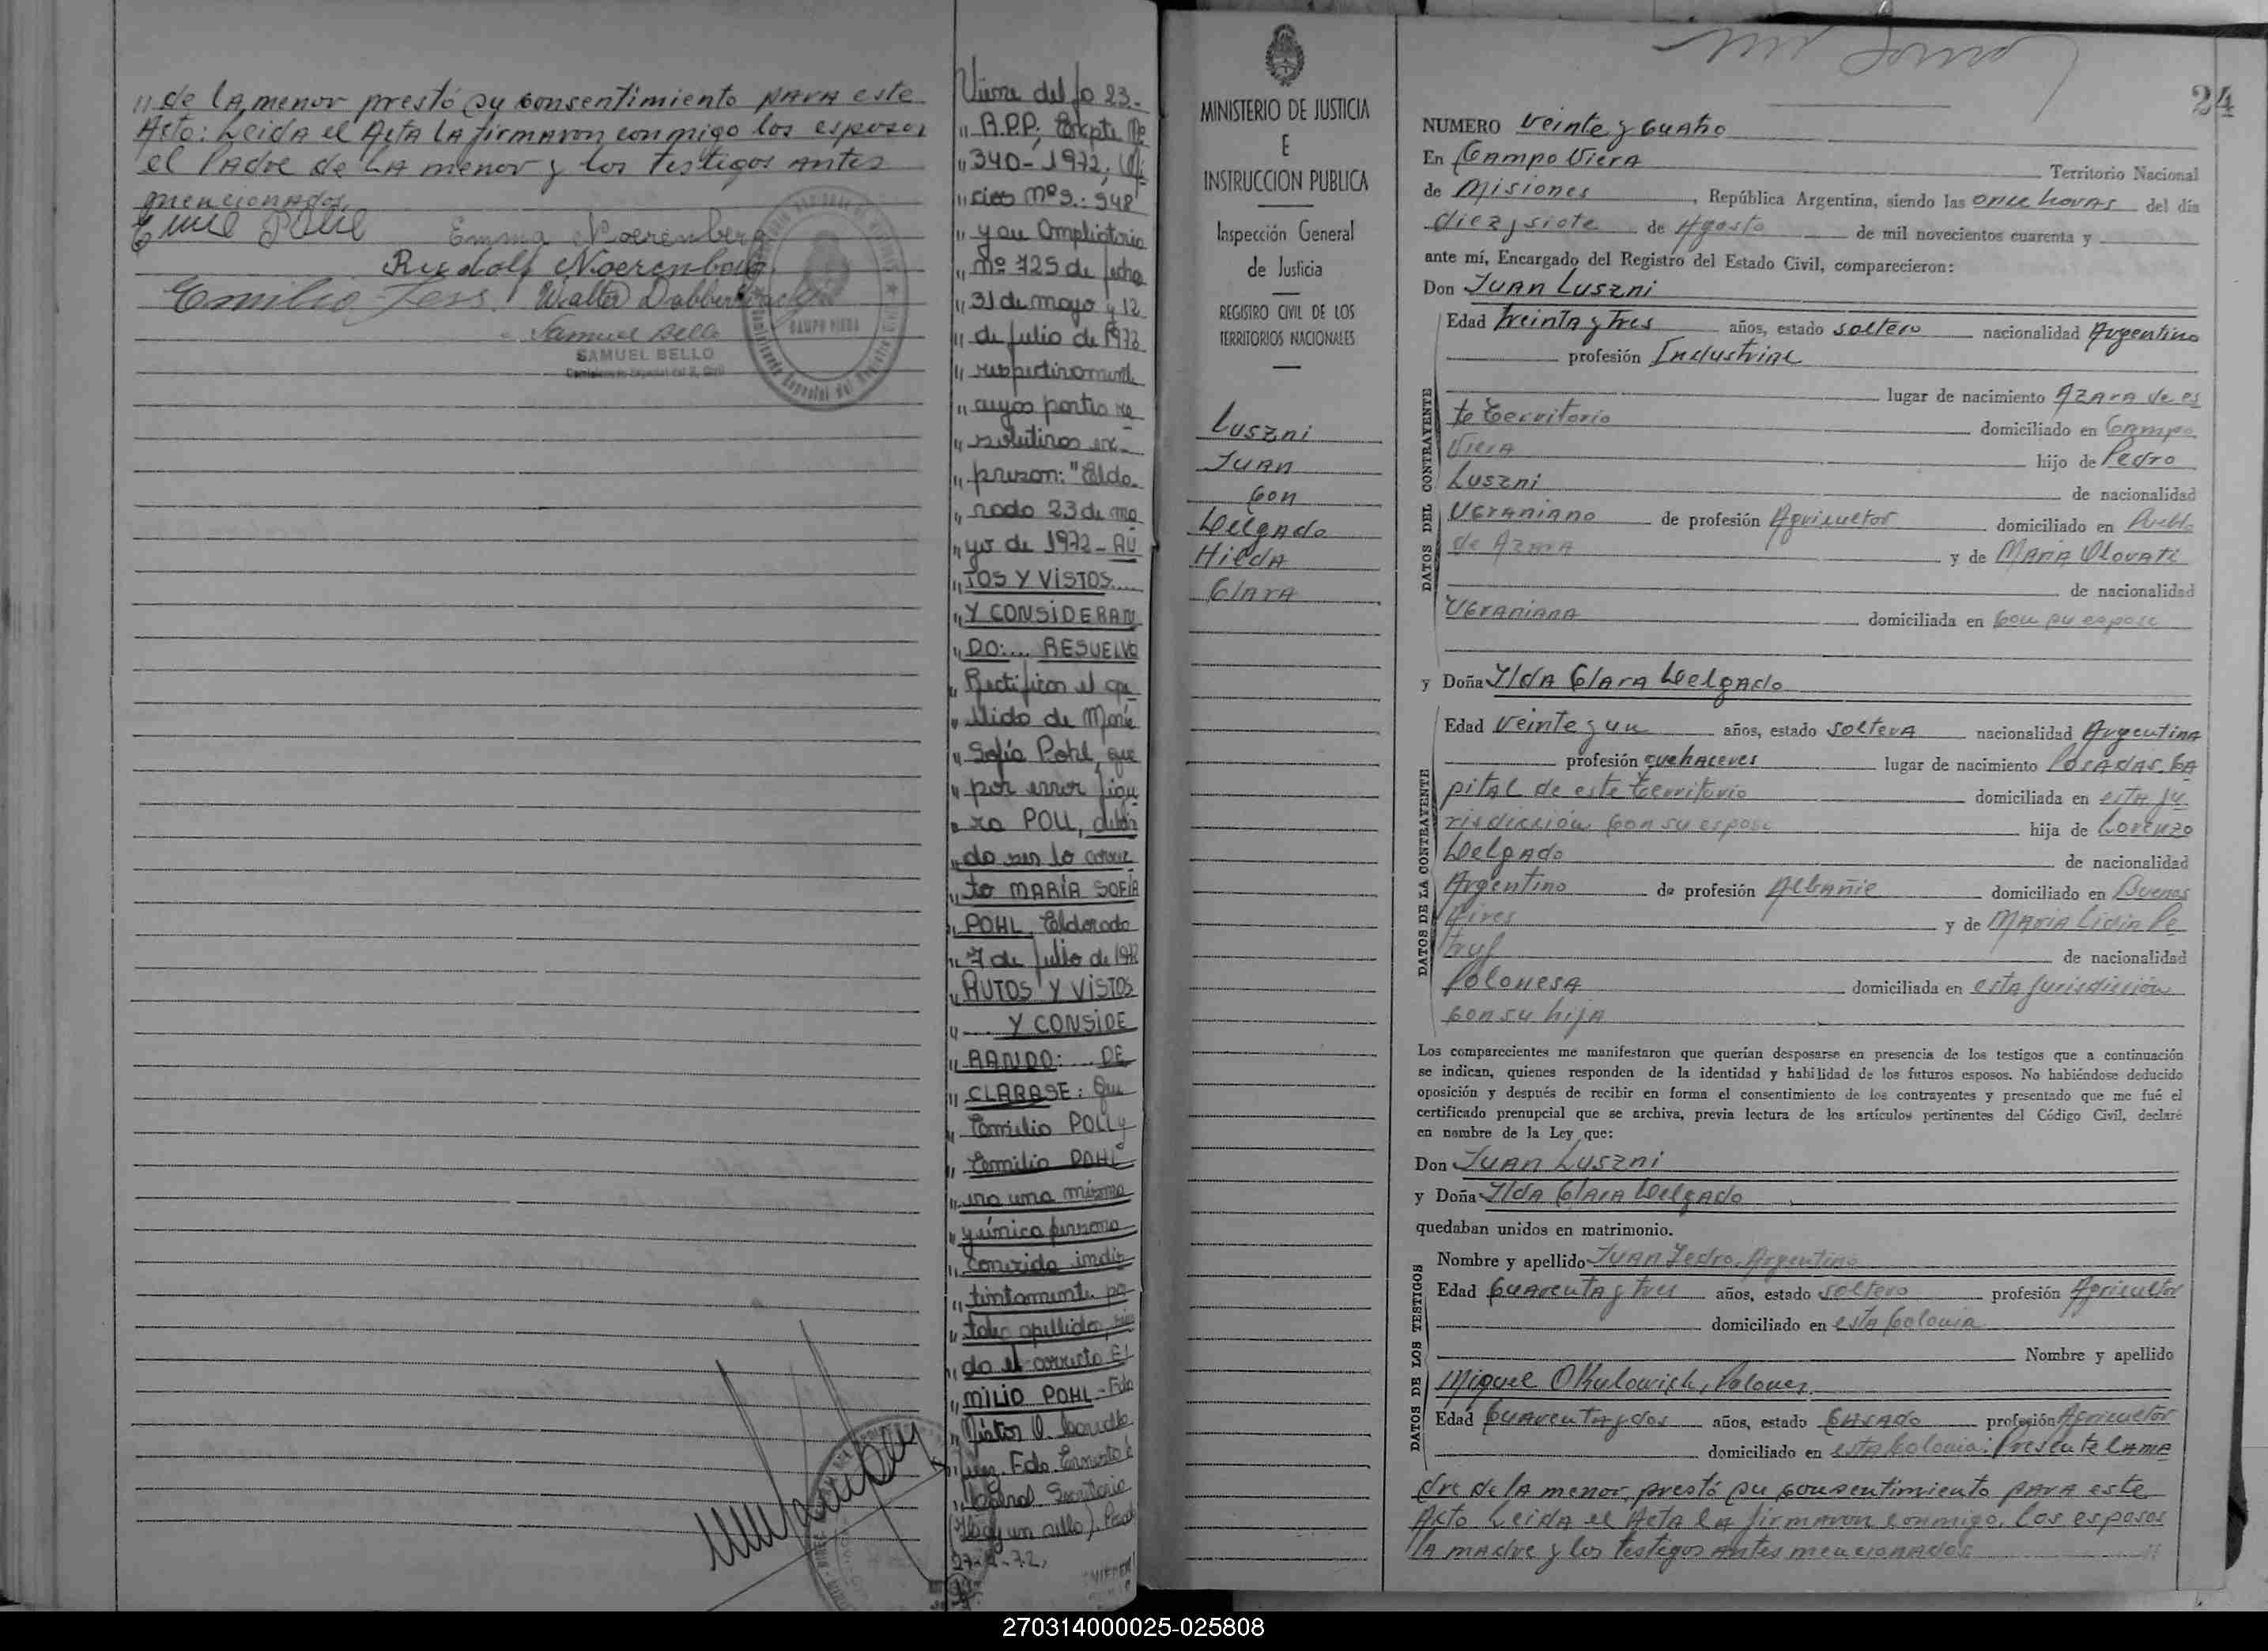 " de la menor prestó su consentimiento para este
Acto: Leida el Acta la firmaron conmigo los esposos
el Padre de la menor y los testigos antes
mencionados
Emil Pohl Emma Noerenberg
Rudolf Noerenberg
Emilio Walter
Samuel Bello
SAMUEL BELLO
CAMPO VIERA
Viene del fo 23.-
" R.P.P; Expte Nº
" 340-1972; Ofi-
" cios Nºs.: 948
" y su Ampliatorio
" Nº 725 de fecha
" 31 de mayo y 12
" de julio de 1972
" respectivamente
" cuyas partes re
" solutivas ex-
" presan: "Eldo-
" rado 23 de ma
" yo de 1972 - AU
" TOS Y VISTOS....
" Y CONSIDERAN
" DO:... RESUELVO
" Rectificar el ape
" llido de María
" Sofía Pohl, que
" por error figu
" ra POLL, debien
" do ser lo correc
" to MARÍA SOFÍA
" POHL. Eldorado
" 7 de julio de 1972
" AUTOS Y VISTOS
" .... Y CONSIDE
" RANDO: ... DE
" CLARASE: Que
" Emilio POLL y
" Emilio POHL
" era una misma
" y única persona
" conocida indis
" tintamente por
" tales apellidos, sien
" do el correcto E
" MILIO POHL - Fdo
" Víctor O.
" Juez. Fdo. Ernesto
" Secretario
(Hay un sello). Posadas
27-7-72.
MINISTERIO DE JUSTICIA
E
INSTRUCCION PUBLICA
Inspección General
de Justicia
REGISTRO CIVIL DE LOS
TERRITORIOS NACIONALES
Luszni
Juan
Con
Delgado
Hilda
Clara
24
NUMERO Veinte y Cuatro
En Campo Viera Territorio Nacional
de Misiones, República Argentina, siendo las once horas del día
diez y siete de Agosto de mil novecientos cuarenta y
ante mí, Encargado del Registro del Estado Civil, comparecieron:
Don Juan Luszni
DATOS DEL CONTRAYENTE
Edad treinta y tres años, estado soltero nacionalidad Argentino
profesión Industrial
lugar de nacimiento Azara de es
te territorio domiciliado en Campo
Viera hijo de Pedro
Luszni de nacionalidad
Ucraniano de profesión Agricultor domiciliado en Pueblo
de Azara y de Maria Olovati
de nacionalidad
Ucraniana domiciliada en Con su esposo
y Doña Ilda Clara Delgado
DATOS DE LA CONTRAYENTE
Edad veinte y un años, estado soltera nacionalidad Argentina
profesión quehaceres lugar de nacimiento Posadas, Ca
pital de este territorio domiciliada en esta ju
risdicción con su esposo hija de Lorenzo
Delgado de nacionalidad
Argentino de profesión Albañil domiciliado en Buenos
Aires y de Maria Lidia Pe
truf de nacionalidad
Polonesa domiciliada en esta jurisdicción
con su hija
Los comparecientes me manifestaron que querían desposarse en presencia de los testigos que a continuación
se indican, quienes responden de la identidad y habilidad de los futuros esposos. No habiéndose deducido
oposición y después de recibir en forma el consentimiento de los contrayentes y presentado que me fué el
certificado prenupcial que se archiva, previa lectura de los artículos pertinentes del Código Civil, declaré
en nombre de la Ley que:
Don Juan Luszni
y Doña Ilda Clara Delgado
quedaban unidos en matrimonio.
DATOS DE LOS TESTIGOS
Nombre y apellido Juan Argentino
Edad Cuarenta y tres años, estado soltero profesión Agricultor
domiciliado en esta Colonia
Nombre y apellido
Miguel Okulowich, Polones
Edad Cuarenta y dos años, estado Casado profesión Agricultor
domiciliado en esta Colonia: Presente la ma
dre de la menor, prestó su consentimiento para este
Acto Leida el Acta la firmaron conmigo, los esposos
la madre y los testigos antes mencionados "
270314000025-025808